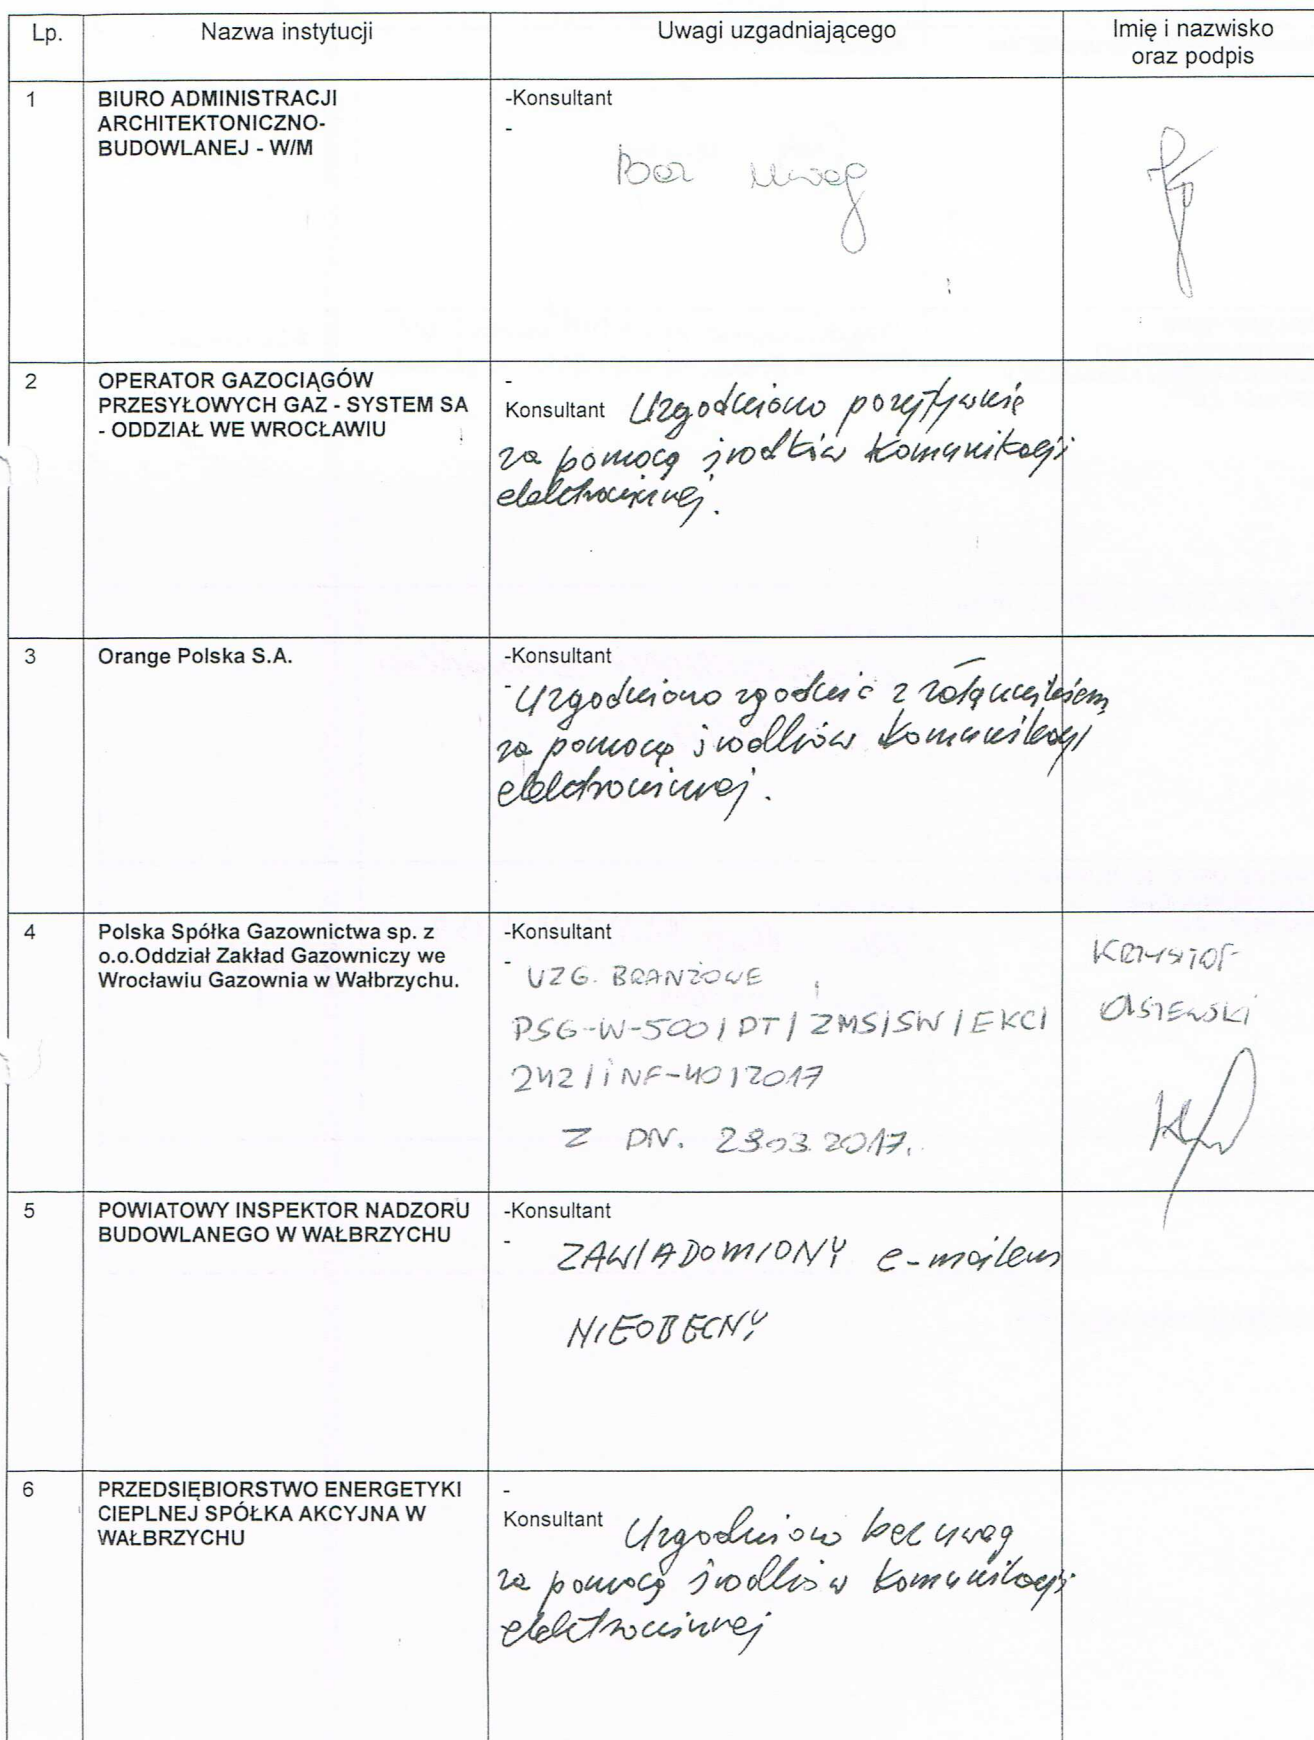 Lp.
Nazwa instytucji
Uwagi uzgadniającego
Imię i nazwisko
oraz podpis
1
BIURO ADMINISTRACJI
ARCHITEKTONICZNO-
BUDOWLANEJ - W/M
-Konsultant
-
Bez uwag
2
OPERATOR GAZOCIĄGÓW
PRZESYŁOWYCH GAZ - SYSTEM SA
- ODDZIAŁ WE WROCŁAWIU
-
Konsultant Uzgodniono pozytywnie
za pomocą środków komunikacji
elektronicznej.
3
Orange Polska S.A.
-Konsultant
- Uzgodniono zgodnie z załącznikiem
za pomocą środków komunikacji
elektronicznej.
4
Polska Spółka Gazownictwa sp. z
o.o.Oddział Zakład Gazowniczy we
Wrocławiu Gazownia w Wałbrzychu.
-Konsultant
- UZG. BRANŻOWE
PSG-W-500/DT/ZMS/SW/EKC/
242/INF-40/2017
Z DN. 23.03.2017.
KRZYSZTOF
5
POWIATOWY INSPEKTOR NADZORU
BUDOWLANEGO W WAŁBRZYCHU
-Konsultant
- ZAWIADOMIONY e-mailem
NIEOBECNY
6
PRZEDSIĘBIORSTWO ENERGETYKI
CIEPLNEJ SPÓŁKA AKCYJNA W
WAŁBRZYCHU
-
Konsultant Uzgodniono bez uwag
za pomocą środków komunikacji
elektronicznej